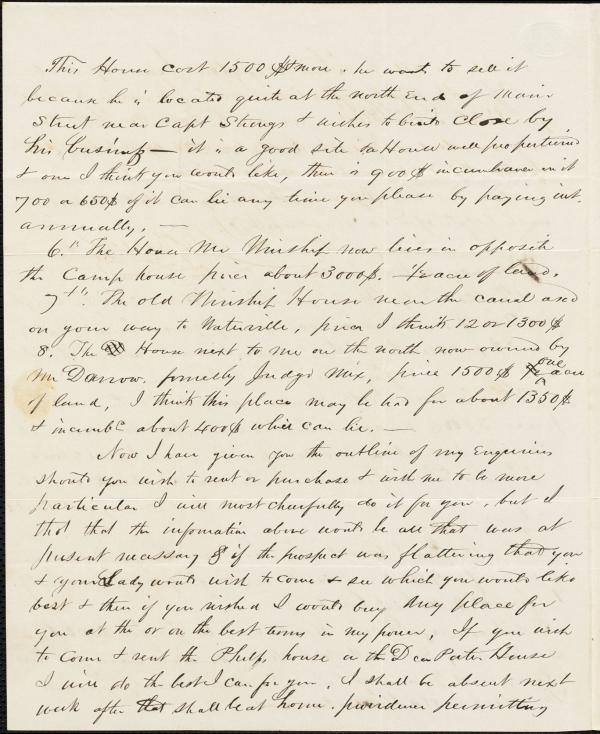 This House cost 1500$ & more. he wants to sell it
because he is located quite at the north End of Main
Street near Capt Strongs & wishes to be Close by
his business — it is a good site & House well proportioned
& one I think you would like, there is 900$ incumbrance on it
700 or 650$ of it can lie any time you please by paying int.
annually. —
6.th The House Mr Winship now lives in opposite
the Camp house price about 3000$. acre of land.
7th. The old Winship House near the canal and
on your way to Waterville, price I think 12 or 1300$
8. The House next to me on the north now owned by
Mr Darrow. formerly Judge Mix, price 1500$ one acre
of land, I think this place may be had for about 1350$
& incumbc about 400$ which can lie. —
Now I have given you the outline of my Enquiries
should you wish to rent or purchase & wish me to be more
particular I will most cheerfully do it for you, but I
thot that the infomation above would be all that was at
present necessary & if the prospect was flattering that you
& your Lady would wish to come & see which you would like
best & then if you wished I would buy any place for
you at the or on the best terms in my power, If you wish
to come & rent the Phelps house or the Dea Porter House
I will do the best I can for you. I shall be absent next
week after that shall be at home. providence permitting